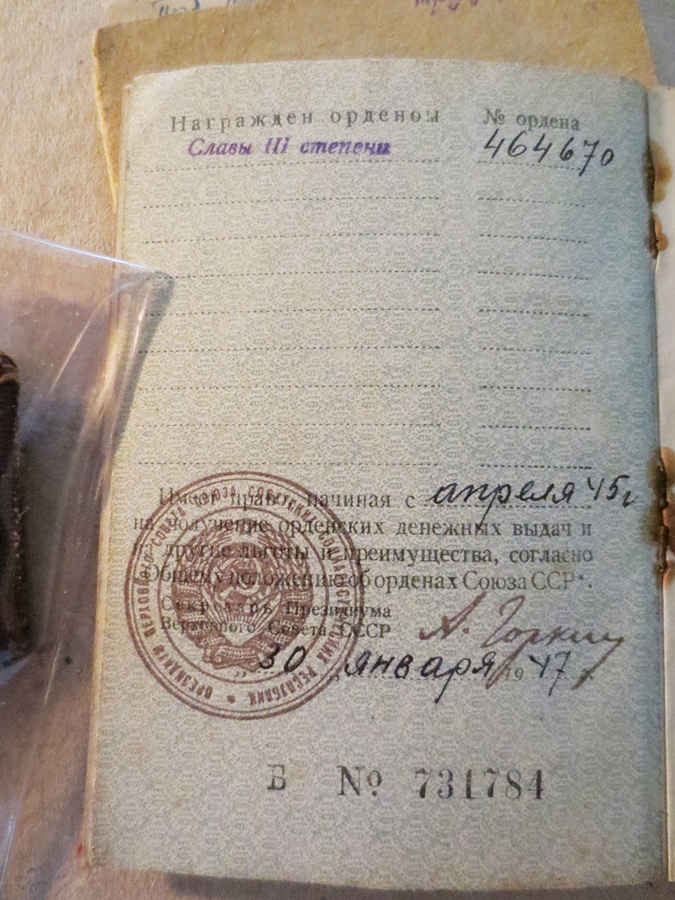 Награжден орденом № ордена
Славы III степени 464670
Имеет право, начиная с апреля 45г
на получение орденских денежных выдач и
другие льготы и преимущества, согласно
„Общему положению об орденах Союза ССР“.
Секретарь Президиума
Верховного Совета СССР А. Горкин
„30„ января 1947г.
ПРЕЗИДИУМ ВЕРХОВНЫЙ СОВЕТ СОЮЗА СОВЕТСКИХ СОЦИАЛИСТИЧЕСКИХ РЕСПУБЛИК
Б № 731784